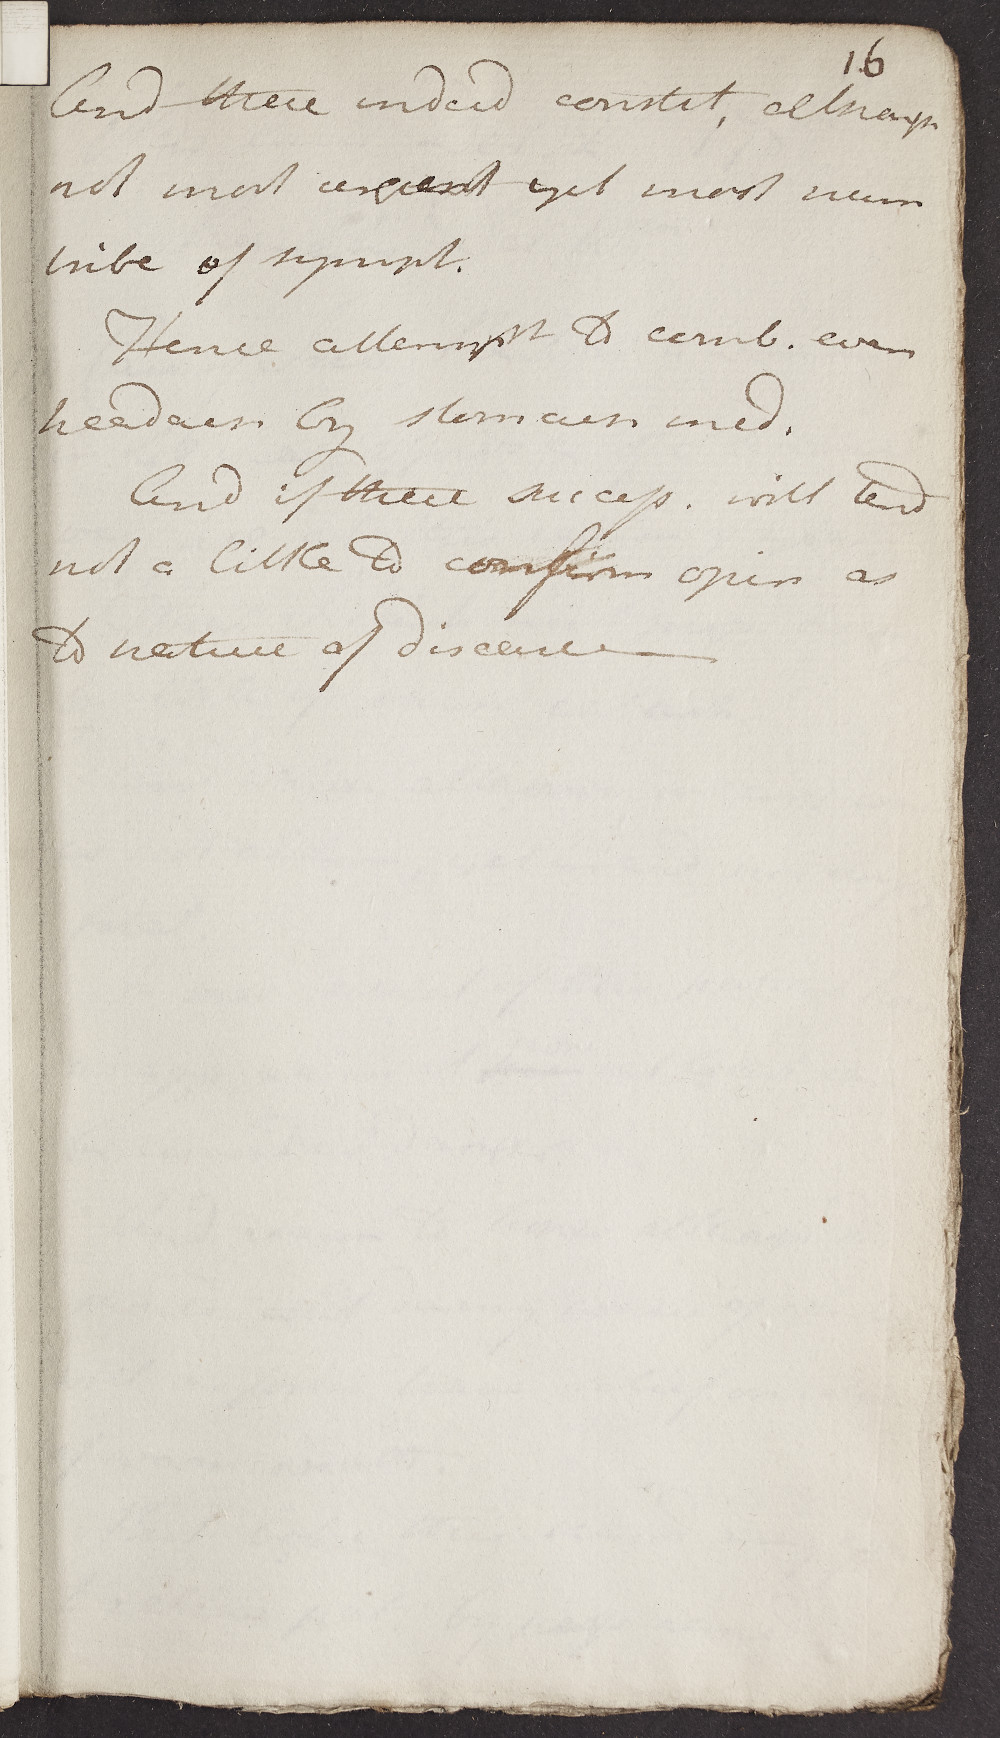 16
And these indeed constit, altho
not most urgent yet most num
tribe of sympt.
Hence attempt to comb. even
headach by stomach med.
And if these success. will tend
not a little to confirm opin as
to nature of disease